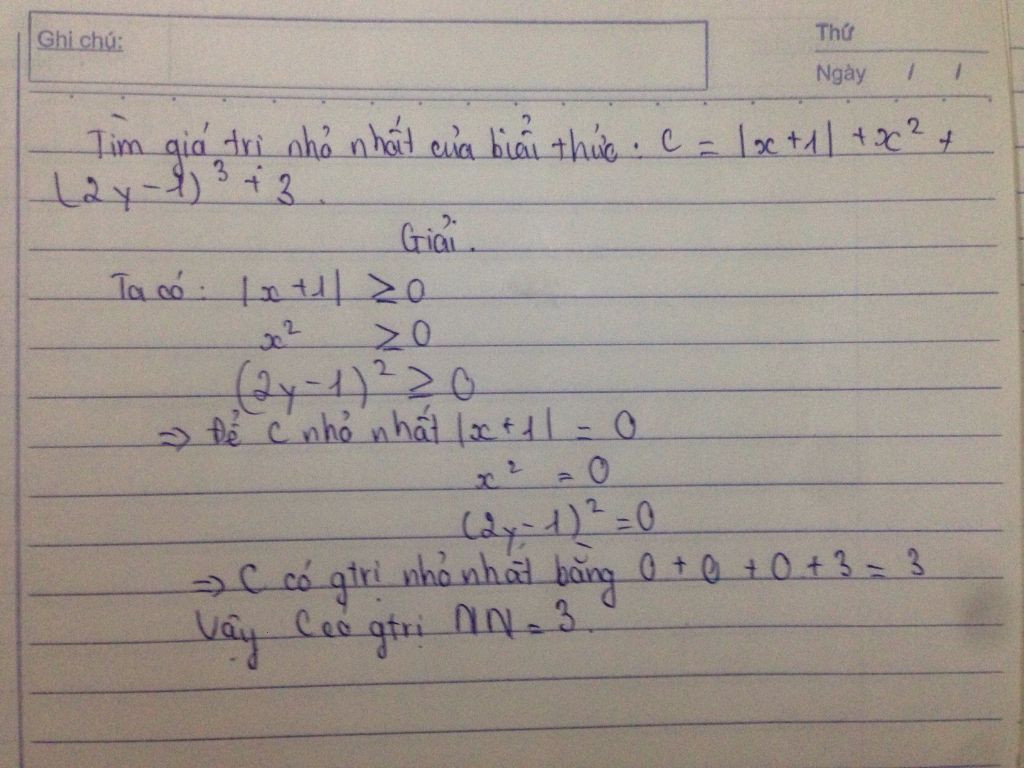 Ghi chú:
Thứ
Ngày / /
Tìm giá trị nhỏ nhất của biẩu thức: C = |x+1| + x² +
(2y-1)³ + 3.
Giải.
Ta có: |x+1| ≥ 0
x² ≥ 0
(2y-1)² ≥ 0
⇒ Để C nhỏ nhất |x+1| = 0
x² = 0
(2y-1)² = 0
⇒ C có gtrị nhỏ nhất bằng 0 + 0 + 0 + 3 = 3
Vậy C có gtrị NN = 3.